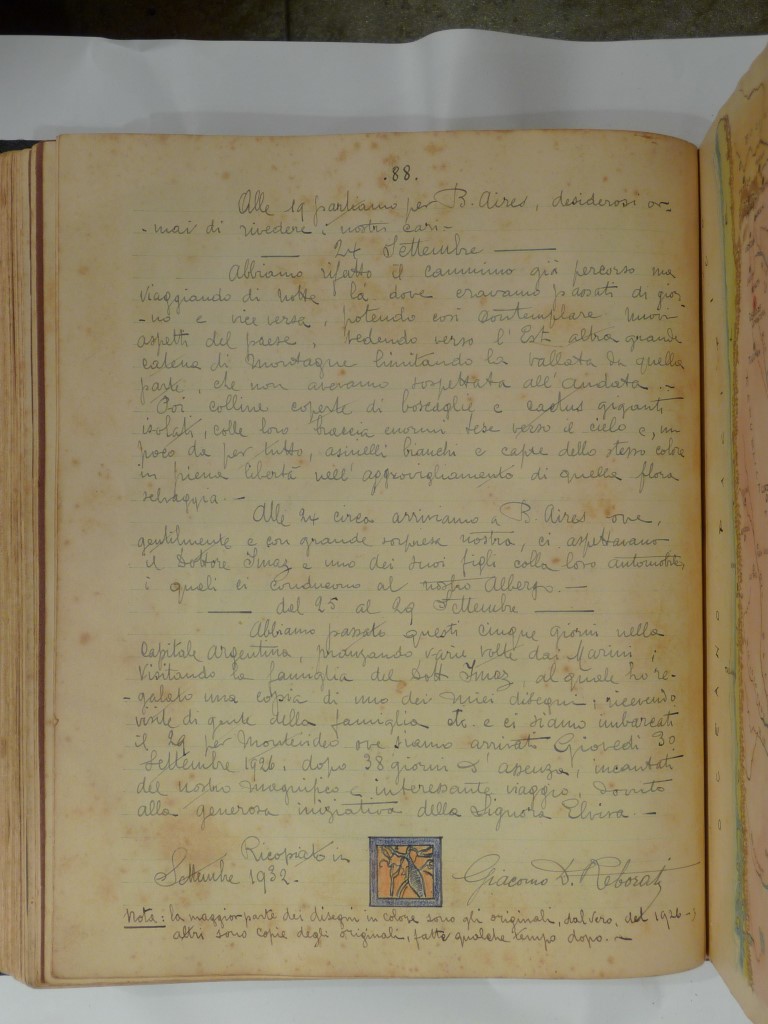 .88.
Alle 19 partiamo per B. Aires, desiderosi or-
-mai di rivedere i nostri cari -
24 Settembre
Abbiamo rifatto il cammino già percorso ma
viaggiando di notte là dove eravamo passati di gior-
-no e vice versa, potendo così contemplare nuovi
aspetti del paese, vedendo verso l'Est altra grande
catena di Montagne limitando la vallata da quella
parte, che non avevamo sospettata all'andata.-
Poi colline coperte di boscaglie e cactus giganti
isolati, colle loro braccia enormi tese verso il cielo e, un
poco da per tutto, asinelli bianchi e capre dello stesso colore
in piena libertà nell'aggrovigliamento di quella flora
selvaggia.-
Alle 24 circa arriviamo a B. Aires ove,
gentilmente e con grande sorpresa nostra, ci aspettavano
il Dottore Imaz e uno dei suoi figli colla loro automobile,
i quali ci conducono al nostro Albergo.-
dal 25 al 29 Settembre
Abbiamo passato questi cinque giorni nella
Capitale Argentina, pranzando varie volte dai Marini;
visitando la famiglia del Dott Imaz, al quale ho re-
-galato una copia di uno dei miei disegni; ricevendo
visite di gente della famiglia etc. e ci siamo imbarcati
il 29 per Montevideo ove siamo arrivati Giovedì 30
Settembre 1926, dopo 38 giorni d'assenza, incantati
del nostro magnifico e interessante viaggio, dovuto
alla generosa iniziativa della Signora Elvira.-
Ricopiato in
Settembre 1932-
Giacomo D. Reborati
Nota: la maggior parte dei disegni in colore sono gli originali, dal vero, del 1926-;
altri sono copie degli originali, fatte qualche tempo dopo.-